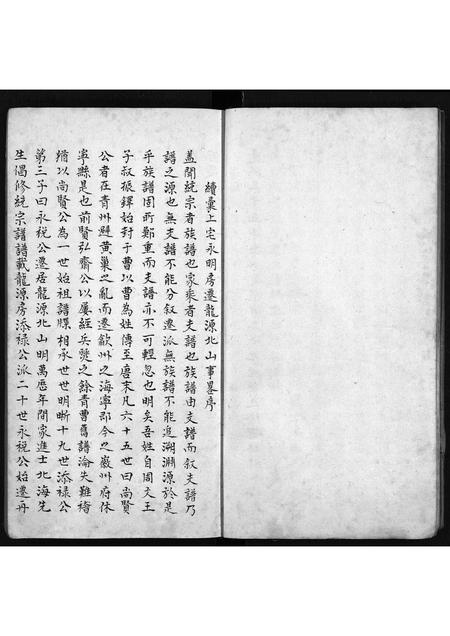 續彙上宅永明房遷龍源北山事畧序
蓋聞統宗者族譜也家乘者支譜也族譜由支譜而叙支譜乃
譜之源也無支譜不能分叙遷派無族譜不能追溯淵源於是
乎族譜固所鄭重而支譜亦不可輕忽也明矣吾姓自周文王
子叔振鐸始封于曹以曹為姓傳至唐末凡六十五世曰尚賢
公者在青州避黃巢之亂而遷歙州之海寧郡今之徽州府休
寧縣是也前賢弘齋公以屢經兵燹之餘青曹舊譜淪失難稽
猶以尚賢公為一世始祖譜牒相承世世明晰十九世添祿公
第三子曰永稅公遷居龍源北山明萬厯年間家進士北海先
生倡修統宗譜譜載龍源房添祿公派二十世永稅公始遷丹